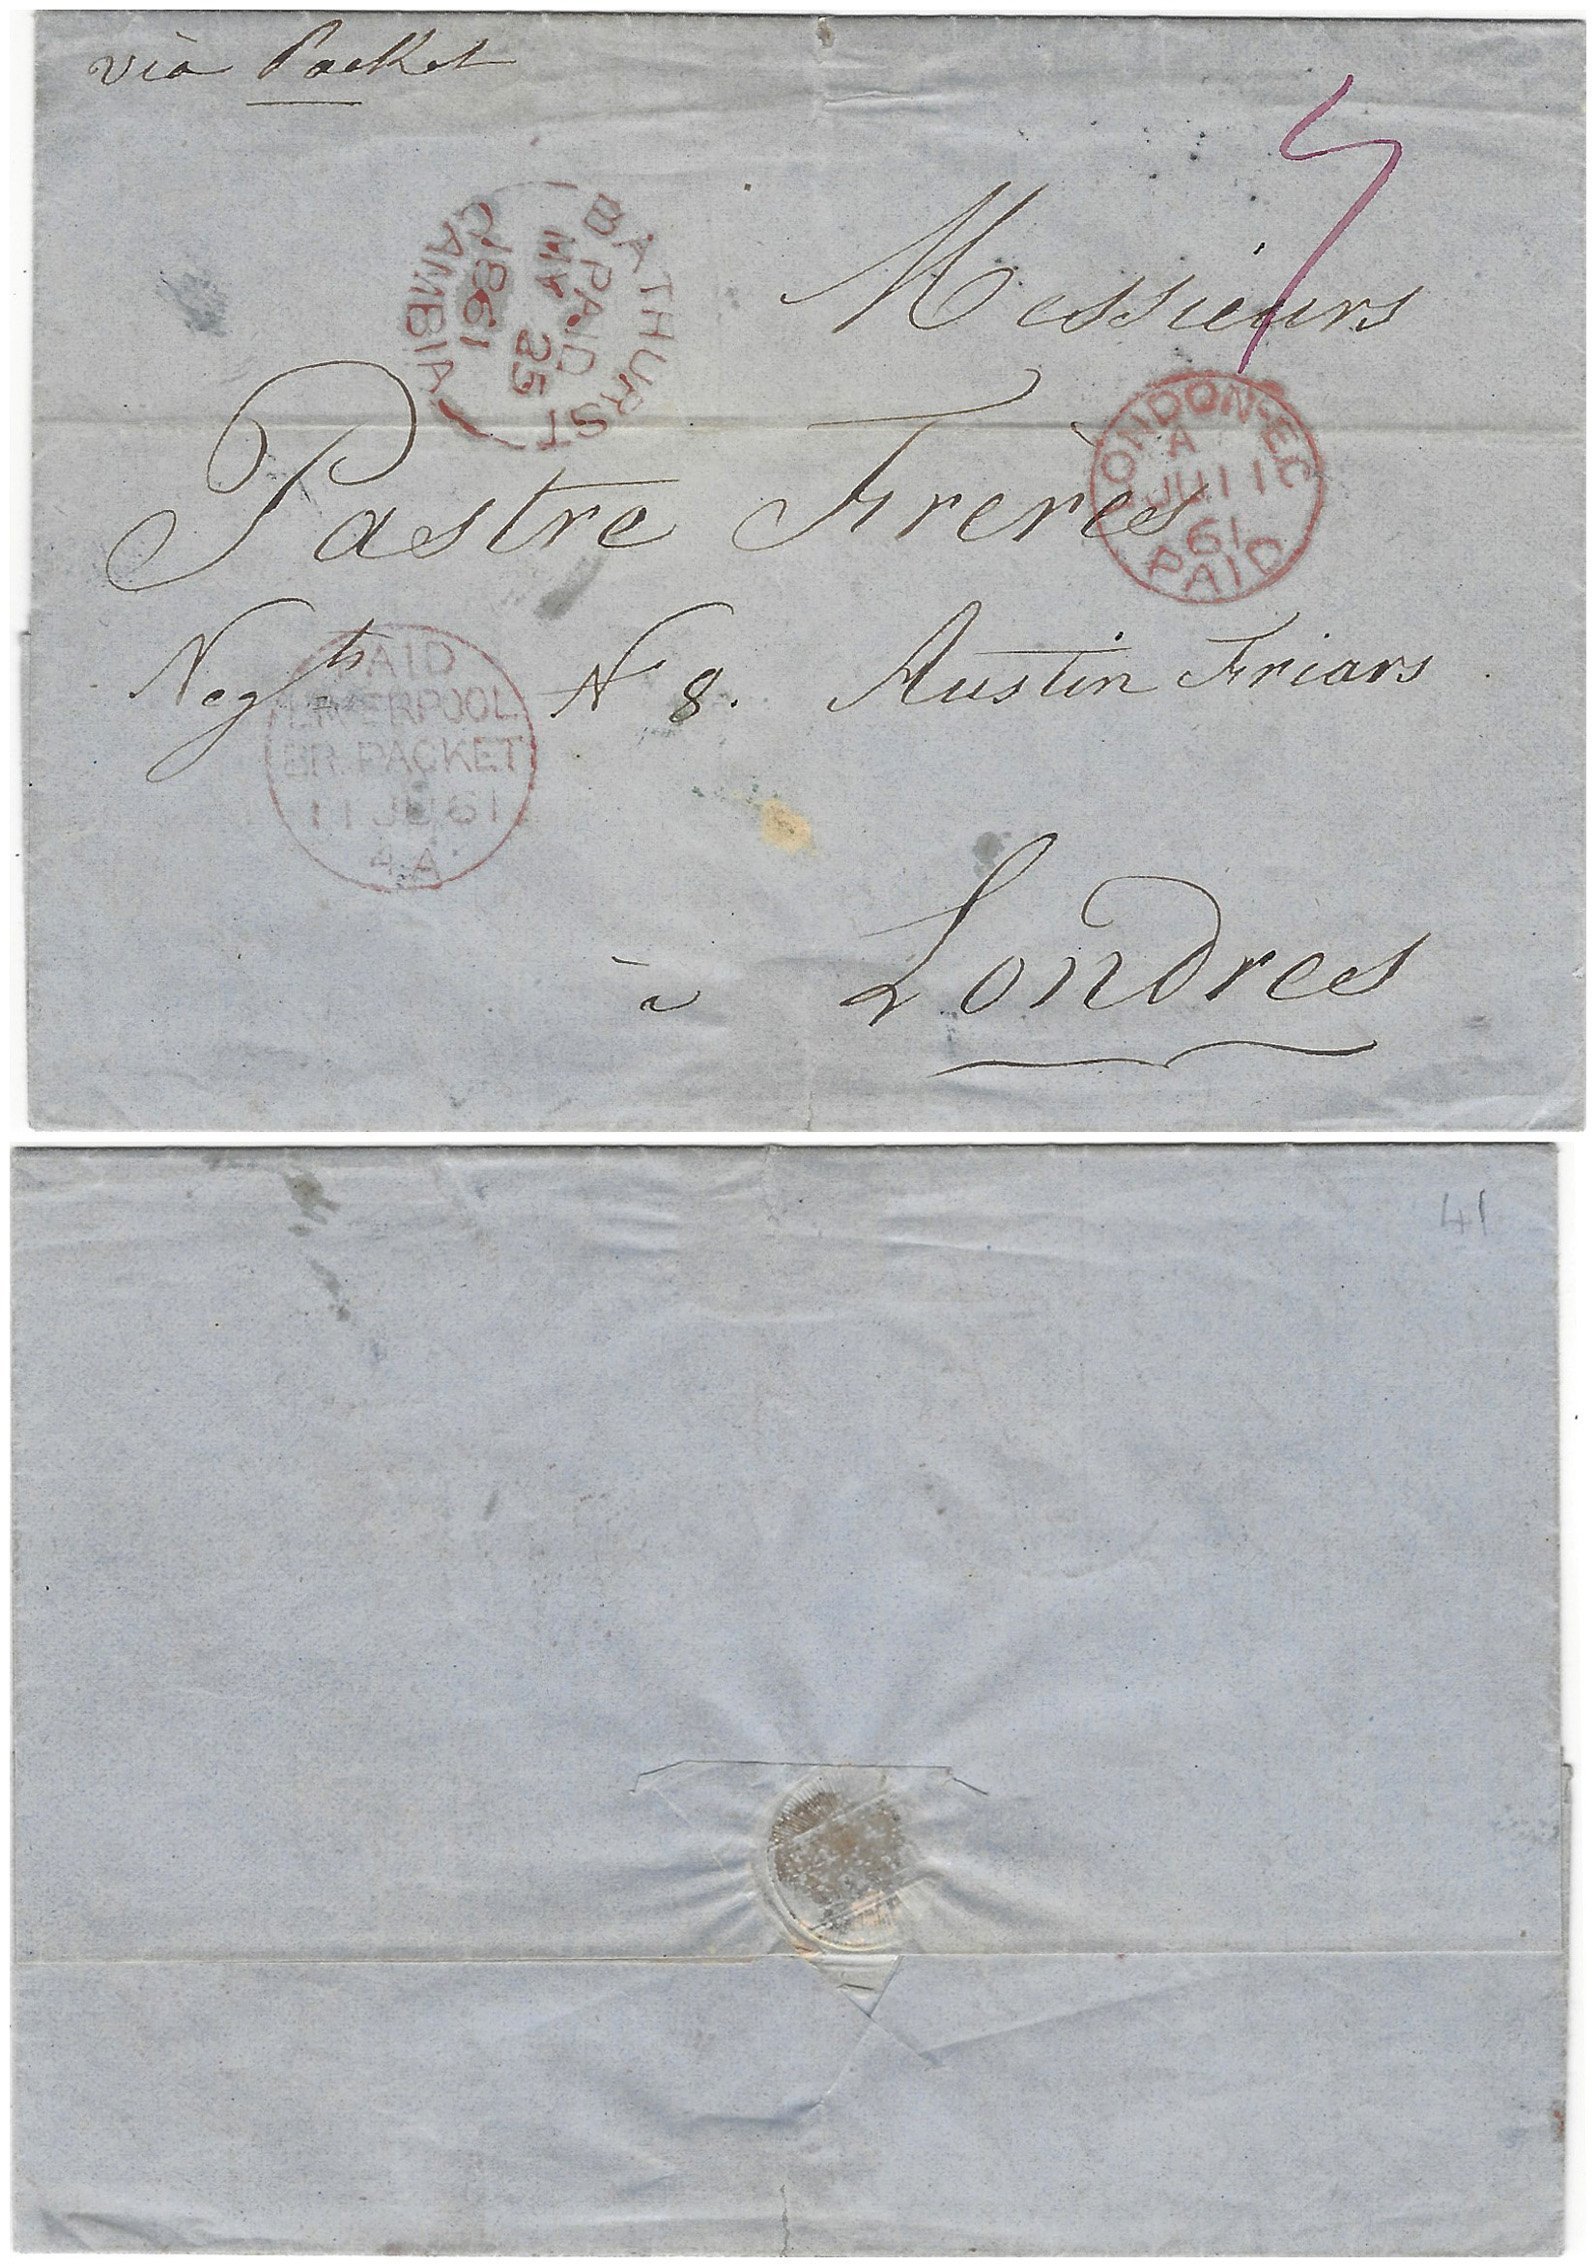 viâ Packet
BATHURST
PAID
MY 25
1861
GAMBIA
Messieurs
LONDON-E.C
A
JU 11
61
PAID
Pastre Frères
Negts N 8. Austin Friars
PAID
LIVERPOOL
BR. PACKET
11 JU 61
4 A
à Londres
41